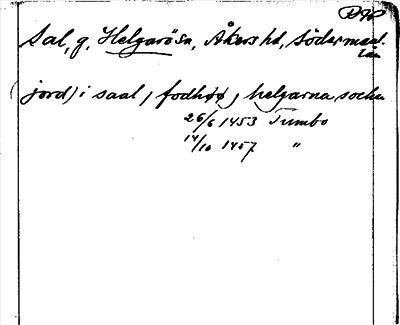 Sal, g, Helgarö sn, Åkers hd, Söderman.
län
(jord) i saal, fodhøø, helgarna sockn
26/6 1453 Tumbo
14/10 1457 "